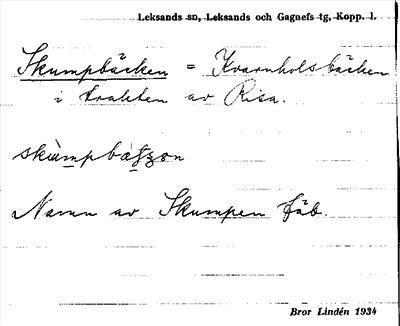 Leksands sn, Leksands och Gagnefs tg, Kopp. l.
Skumpbäcken = Kvarnholsbäcken
i trakten av Risa.
Namn av Skumpen fäb.
Bror Lindén 1934